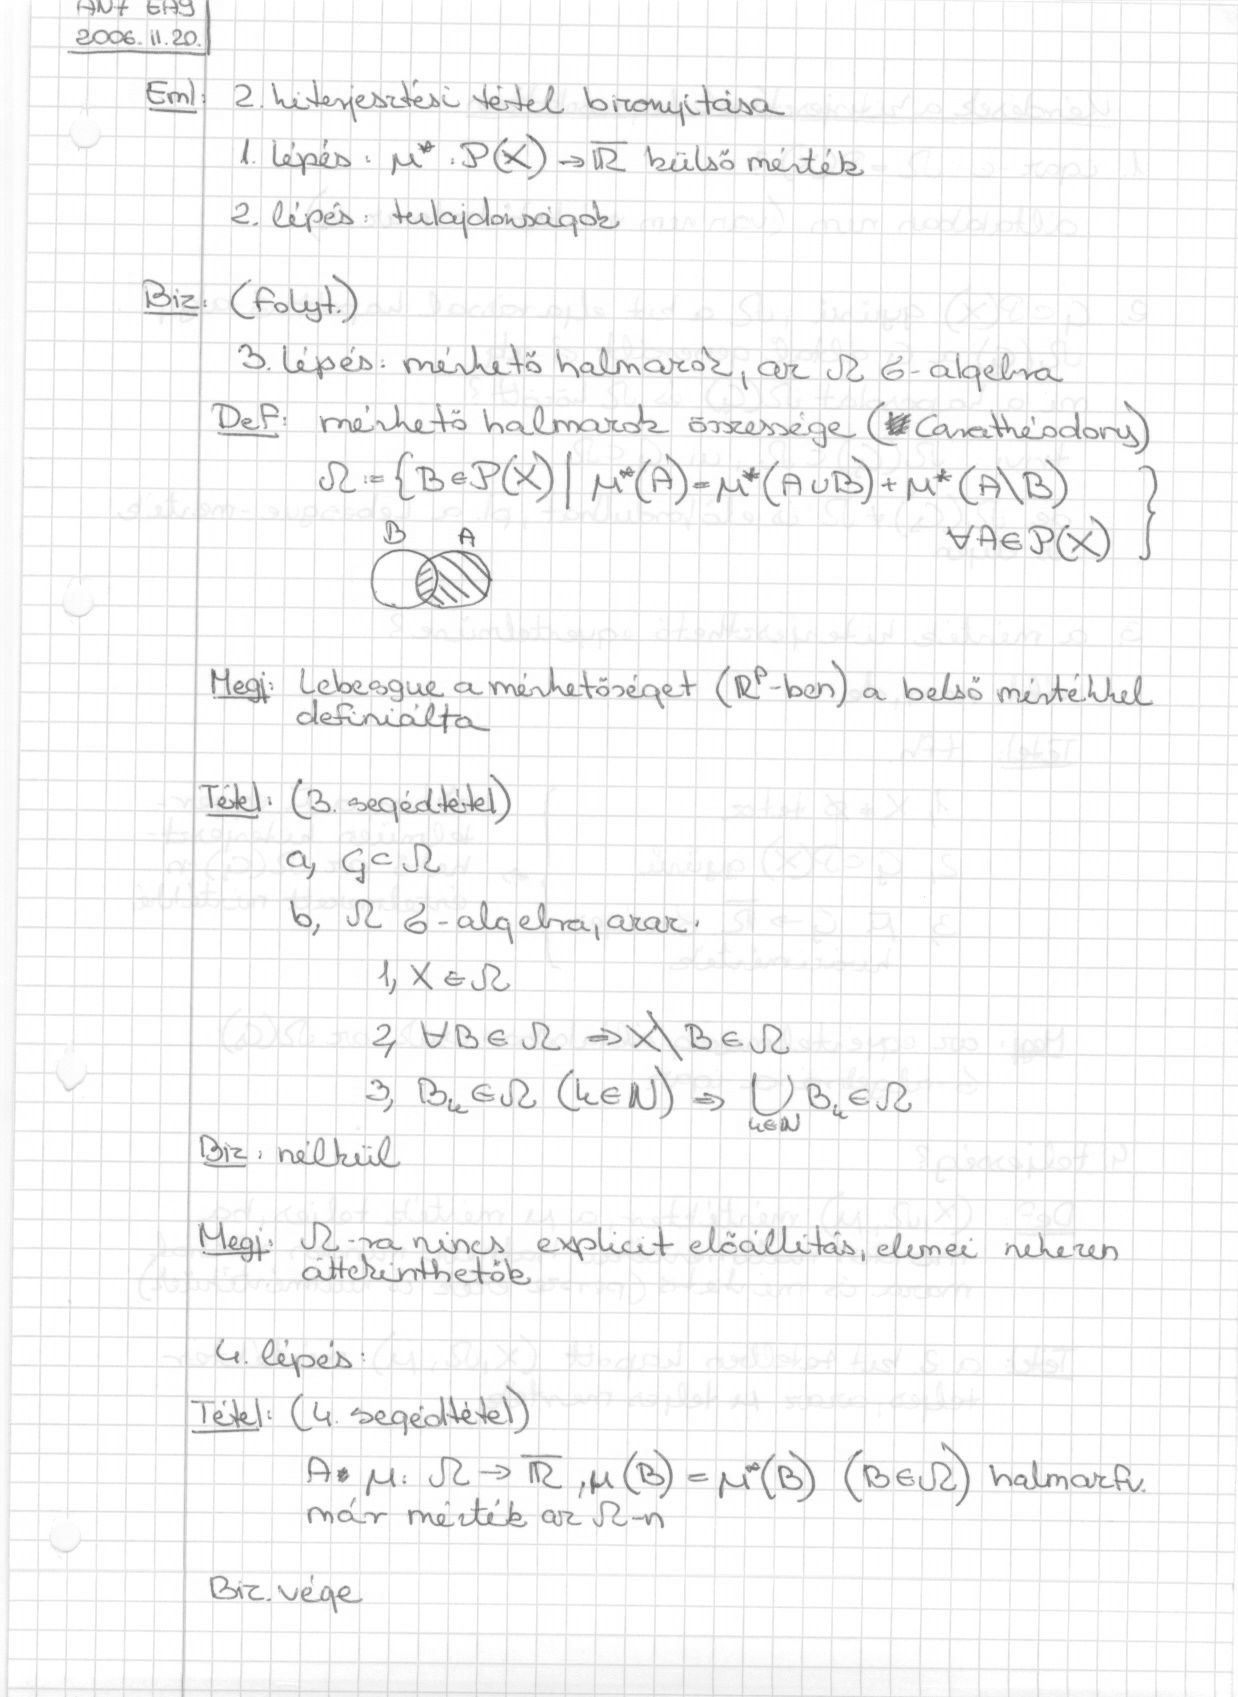 AN7 EA9
2006. 11. 20.
Eml: 2. kiterjesztési tétel bizonyítása
1. lépés: μ* : P(X) → R̅ külső mérték
2. lépés: tulajdonságok
Biz: (folyt.)
3. lépés: mérhető halmazok, az Ω σ-algebra
Def: mérhető halmazok összessége (Carathéodory)
Ω := { B ∈ P(X) | μ*(A) = μ*(A ∪ B) + μ*(A \ B)
∀A ∈ P(X) }
B A
Megj: Lebesgue a mérhetőséget (ℝᵖ-ben) a belső mértékkel
definiálta
Tétel: (3. segédtétel)
a, G ⊂ Ω
b, Ω σ-algebra, azaz:
1, X ∈ Ω
2, ∀B ∈ Ω ⇒ X \ B ∈ Ω
3, Bₖ ∈ Ω (k ∈ ℕ) ⇒ ⋃ Bₖ ∈ Ω
k∈ℕ
Biz: nélkül
Megj: Ω-ra nincs explicit előállítás, elemei nehezen
áttekinthetők
4. lépés:
Tétel: (4. segédtétel)
A μ: Ω → R̅, μ(B) = μ*(B) (B ∈ Ω) halmazfv.
már mérték az Ω-n
Biz. vége